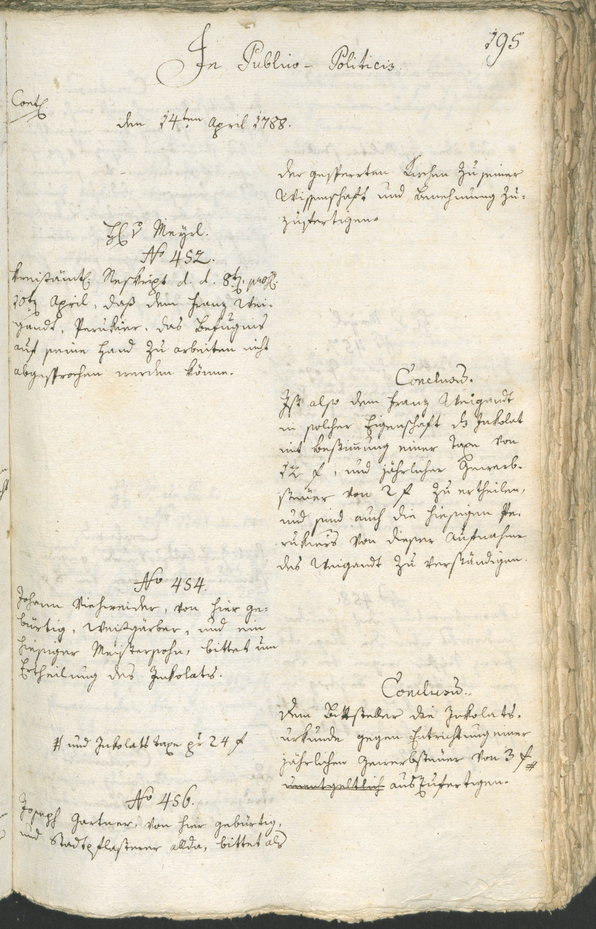 195
In Publico-Politicis.
Contᵉ
den 14ten April 1788.
der gesperrten Kirchen zu seiner
Wissenschaft und Benehmung zu-
zufertigen.
H v Mayrl.
No 452.
Kreißämtl Reskript d. d. 8t
10t April, daß dem Franz Wei-
gandt, Perukier, das Befugnis
auf seine Hand zu arbeiten nicht
abgesprochen werden könne.
Conclusu.
Ist also dem Franz Weigandt
in solcher Eigenschaft das Inkolat
mit Bestimung einer Taxe von
12 f, und jährlicher Gewerb-
steuer von 2 f zu ertheilen,
und sind auch die hiesigen Pe-
rukiers von dieser Aufnahme
des Weigandt zu verständigen.
No 454.
Johann Viehweider, von hier ge-
bürtig, Weißgärber, und ein
hiesiger Meistersohn, bittet um
Ertheilung des Inkolats.
Conclusu.
Dem Bittsteller die Inkolats-
urkunde gegen Entrichtung einer
jährlichen Gewerbsteuer von 3 f #
unentgeltlich auszufertigen.
# und Inkolatstaxe pr 24 f
No 456.
Joseph Gartner, von hier gebürtig,
und Stadtpflasterer allda, bittet als